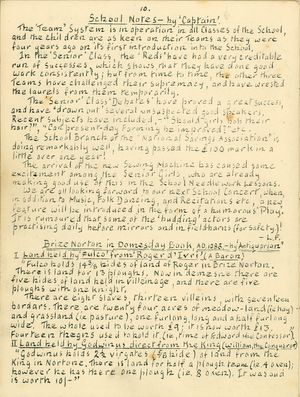 10.
School Notes - by 'Captain'
The 'Team' System is in operation in all Classes of the School,
and the children are as keen on their Teams as they were
four years ago on its first introduction into the School.
In the 'Senior' Class, the 'Reds' have had a very creditable
run of successes, which shows that they have done good
work consistently; but from time to time, the other three
Teams have challenged their supremacy, and have wrested
the laurels from them temporarily.
The 'Senior' Class 'Debates' have proved a great success,
and have drawn out several unsuspected good speakers.
Recent subjects have included, - "Should girls bob their
hair?" "Can present-day Farming be improved?" etc.
The School Branch of the "National Savings Association" is
doing remarkably well, having passed the £100 mark in a
little over one year!
The arrival of the new Sewing Machine has caused some
excitement among the Senior Girls, who are already
making good use of this in the School Needlework Lessons.
We are all looking forward to our next School Concert, when,
in addition to Music, Folk Dancing, and Recitations etc., a new
feature will be introduced in the form of a humorous Play.
It is rumoured that some of the 'budding' actors are
practising daily before mirrors and in fields and barns (for safety)!
- L.F.
Brize Norton in Domesday Book, A.D. 1086 - by 'Antiquarian'
I Land held by Fulco from Roger D'Ivri (A Baron)
"Fulco holds hides of land of Roger in Brize Norton.
There is land for 13 ploughs. Now in demesne there are
five hides of land held in villeinage, and there are five
ploughs with one knight.
There are eight slaves, thirteen villeins, with seventeen
bordars. There are twenty four acres of meadow-land,
and grassland (ie pasture), one furlong long and a half furlong
wide. The whole used to be worth £9; it is now worth £13.
Fourteen thegns used to hold it (ie, Time of Edward the Confessor)"
II Land held by Godwinus direct from the King (William, the Conqueror)
"Godwinus holds 2½ virgates hide) of land from the
King in Nortone. There is land for half a plough team (i.e. 4 oxen);
however he has there one plough (i.e. 8 oxen). It was and
is worth 10/-"